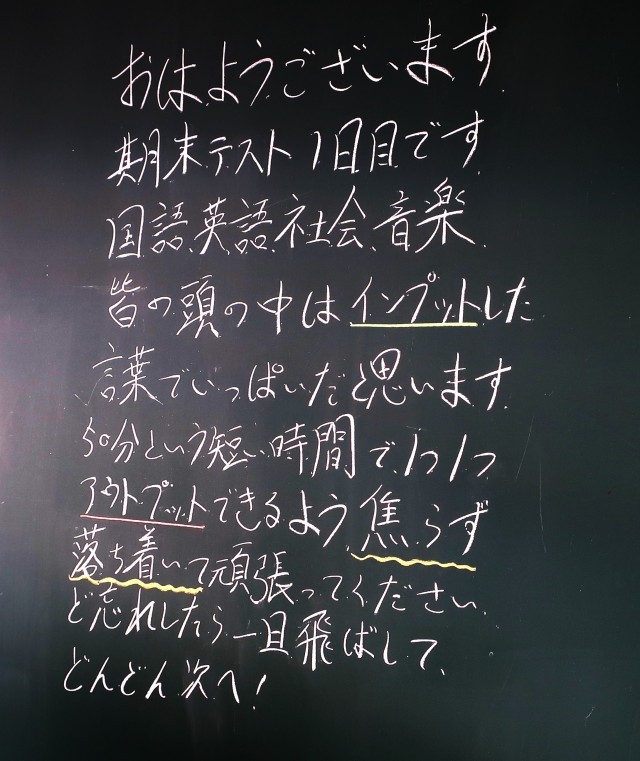 おはようございます
期末テスト1日目です。
国語、英語、社会、音楽
皆の頭の中はインプットした
言葉でいっぱいだと思います。
50分という短い時間で1つ1つ
アウトプットできるよう、焦らず
落ち着いて頑張ってください。
ど忘れしたら一旦飛ばして、
どんどん次へ!